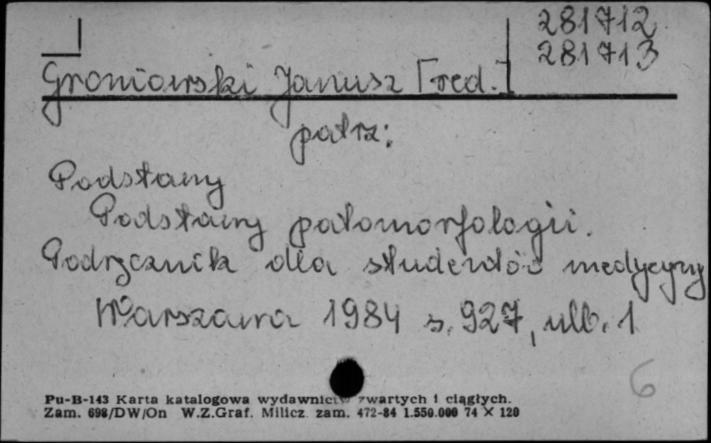 281712
281713
Groniowski Janusz [red.]
patrz:
Podstawy
Podstawy patomorfologii.
Podręcznik dla studentów medycyny
Warszawa 1984 s. 927, nlb. 1
6
Pu-B-143 Karta katalogowa wydawnictw zwartych i ciągłych.
Zam. 698/DW/On W.Z.Graf. Milicz zam. 472-84 1.550.000 74 X 120